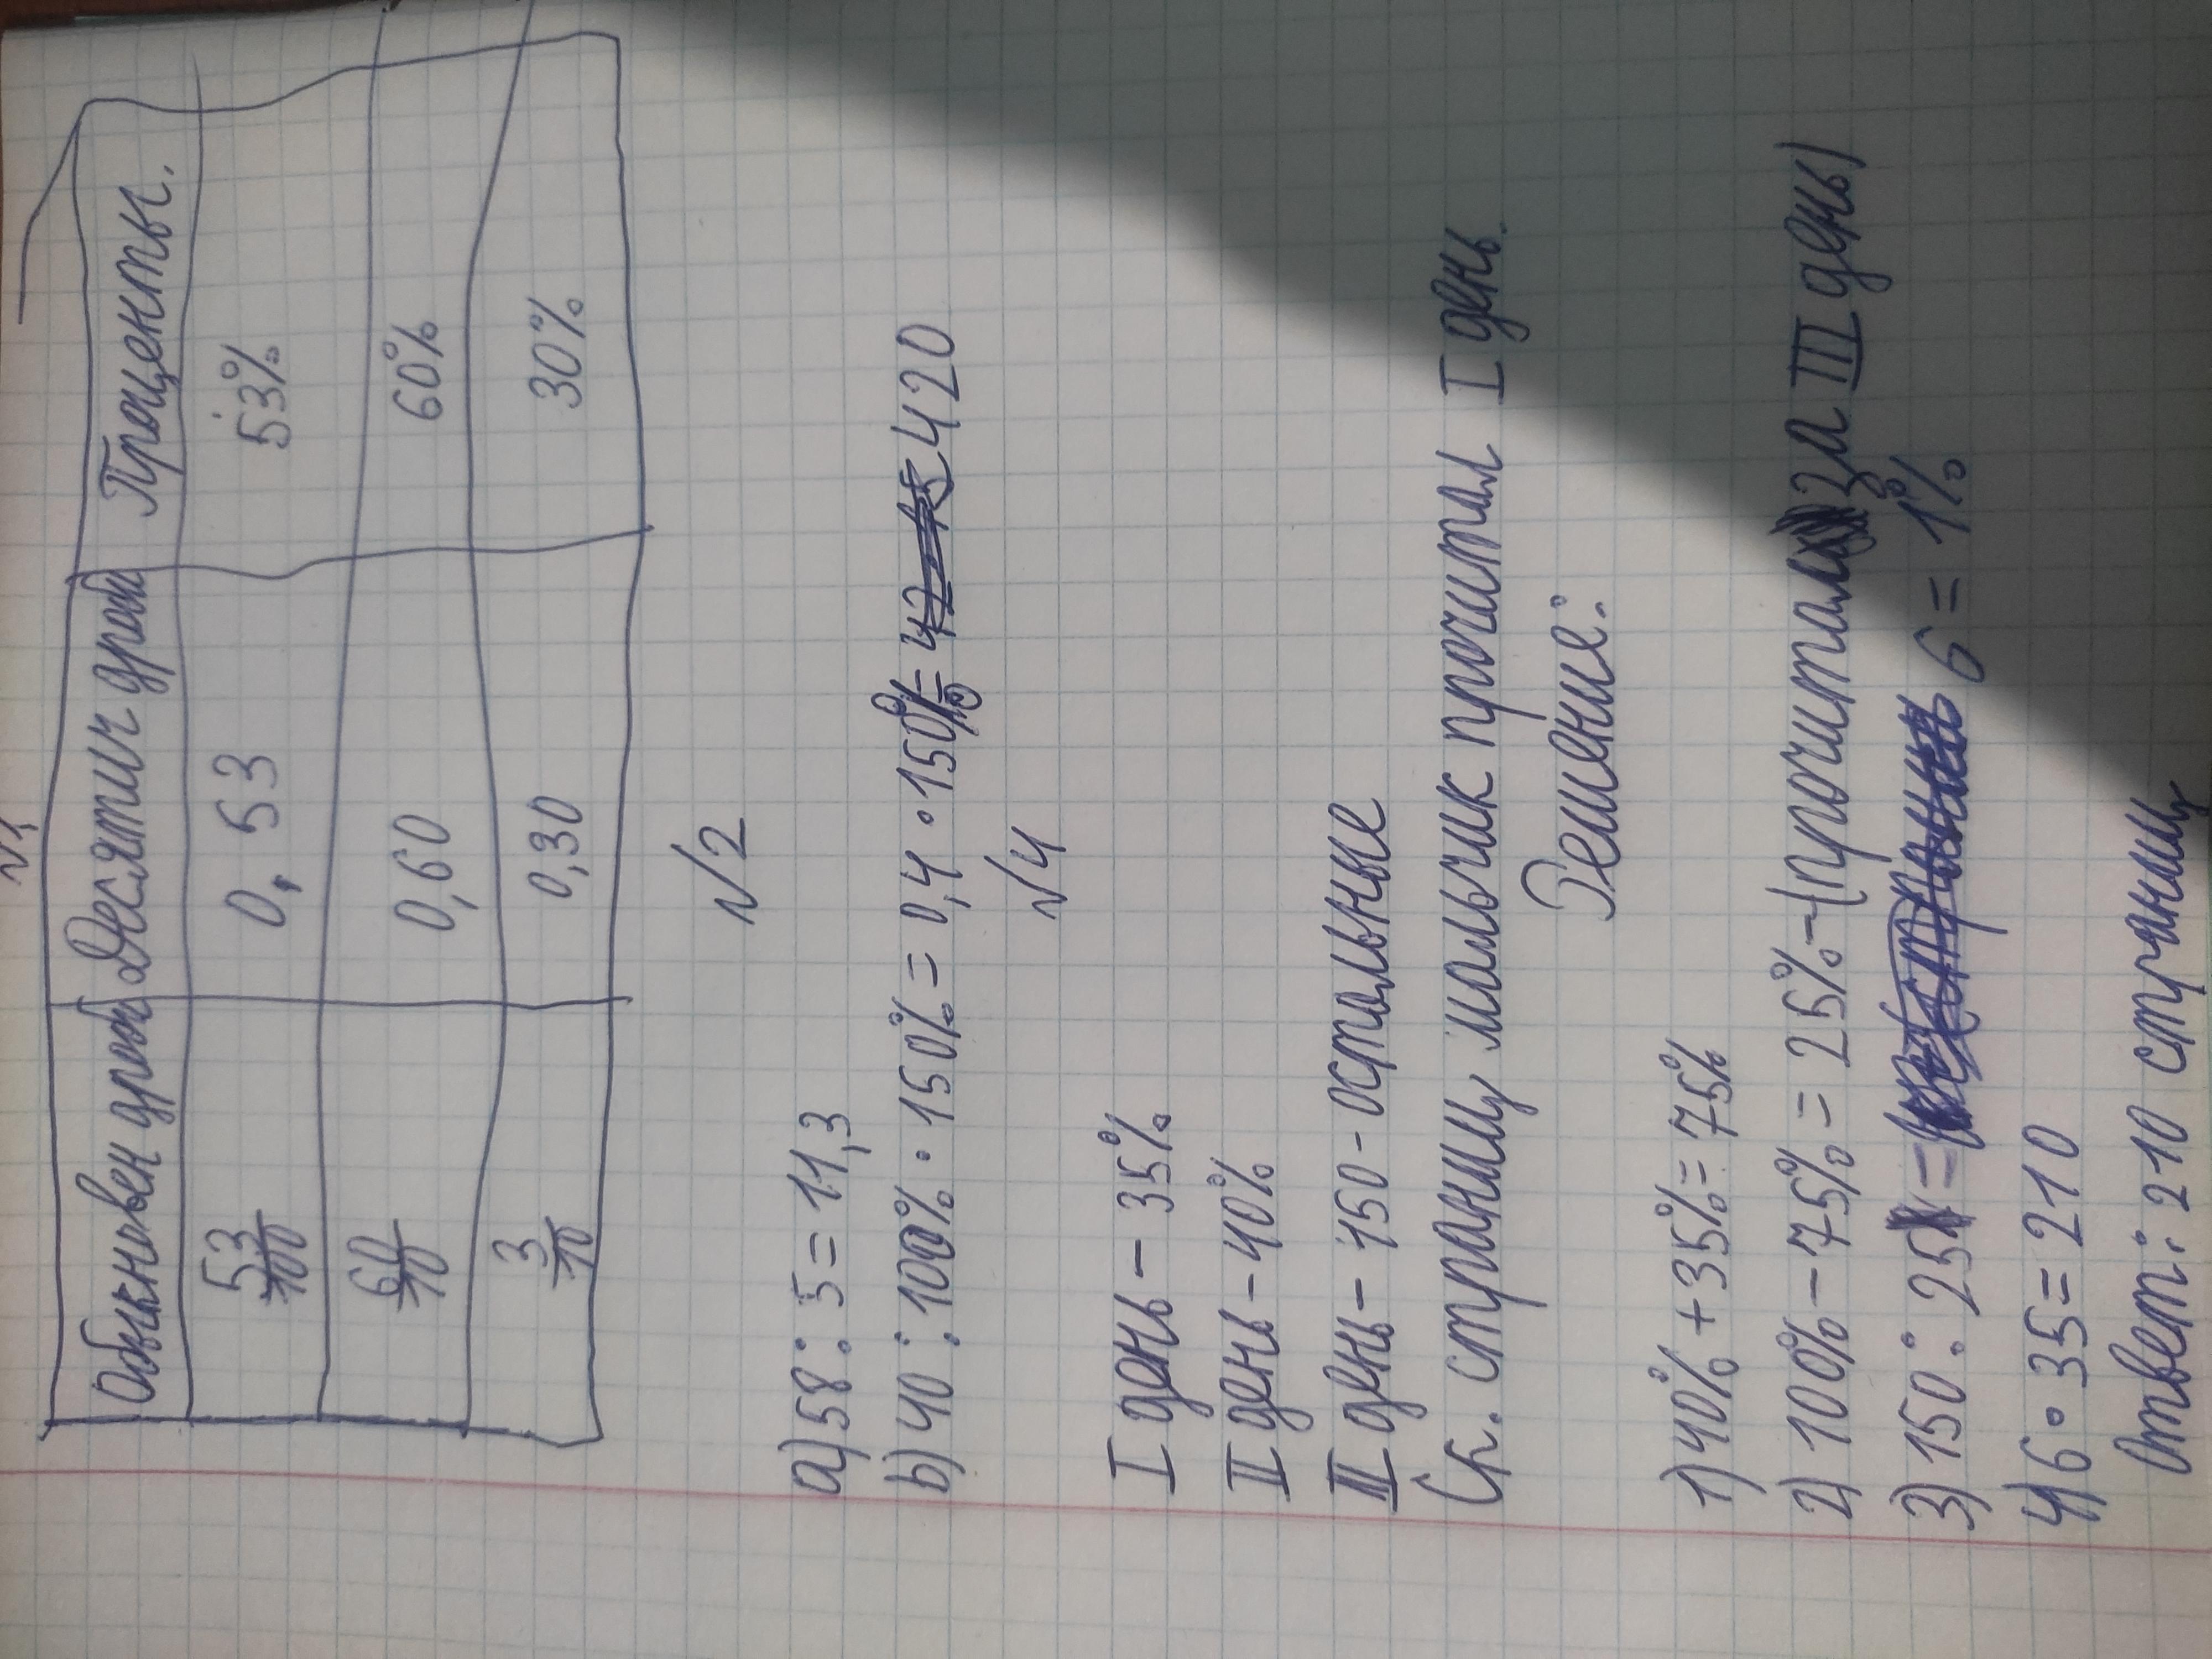 №1
Обыкновен дроб Десятич дроб Проценты.
53/100 0,53 53%
60/10 0,60 60%
3/10 0,30 30%
№2
а) 58 : 5 = 11,3
b) 40 : 100% · 150% = 0,4 · 150% = 420
№4
I день - 35%
II день - 40%
III день - 150 - остальные
Ск. страниц мальчик прочитал I день.
Решение:
1) 40% + 35% = 75%
2) 100% - 75% = 25% - (прочитал за III день)
3) 150 : 25 = 6 = 1%
4) 6 · 35 = 210
Ответ: 210 страниц